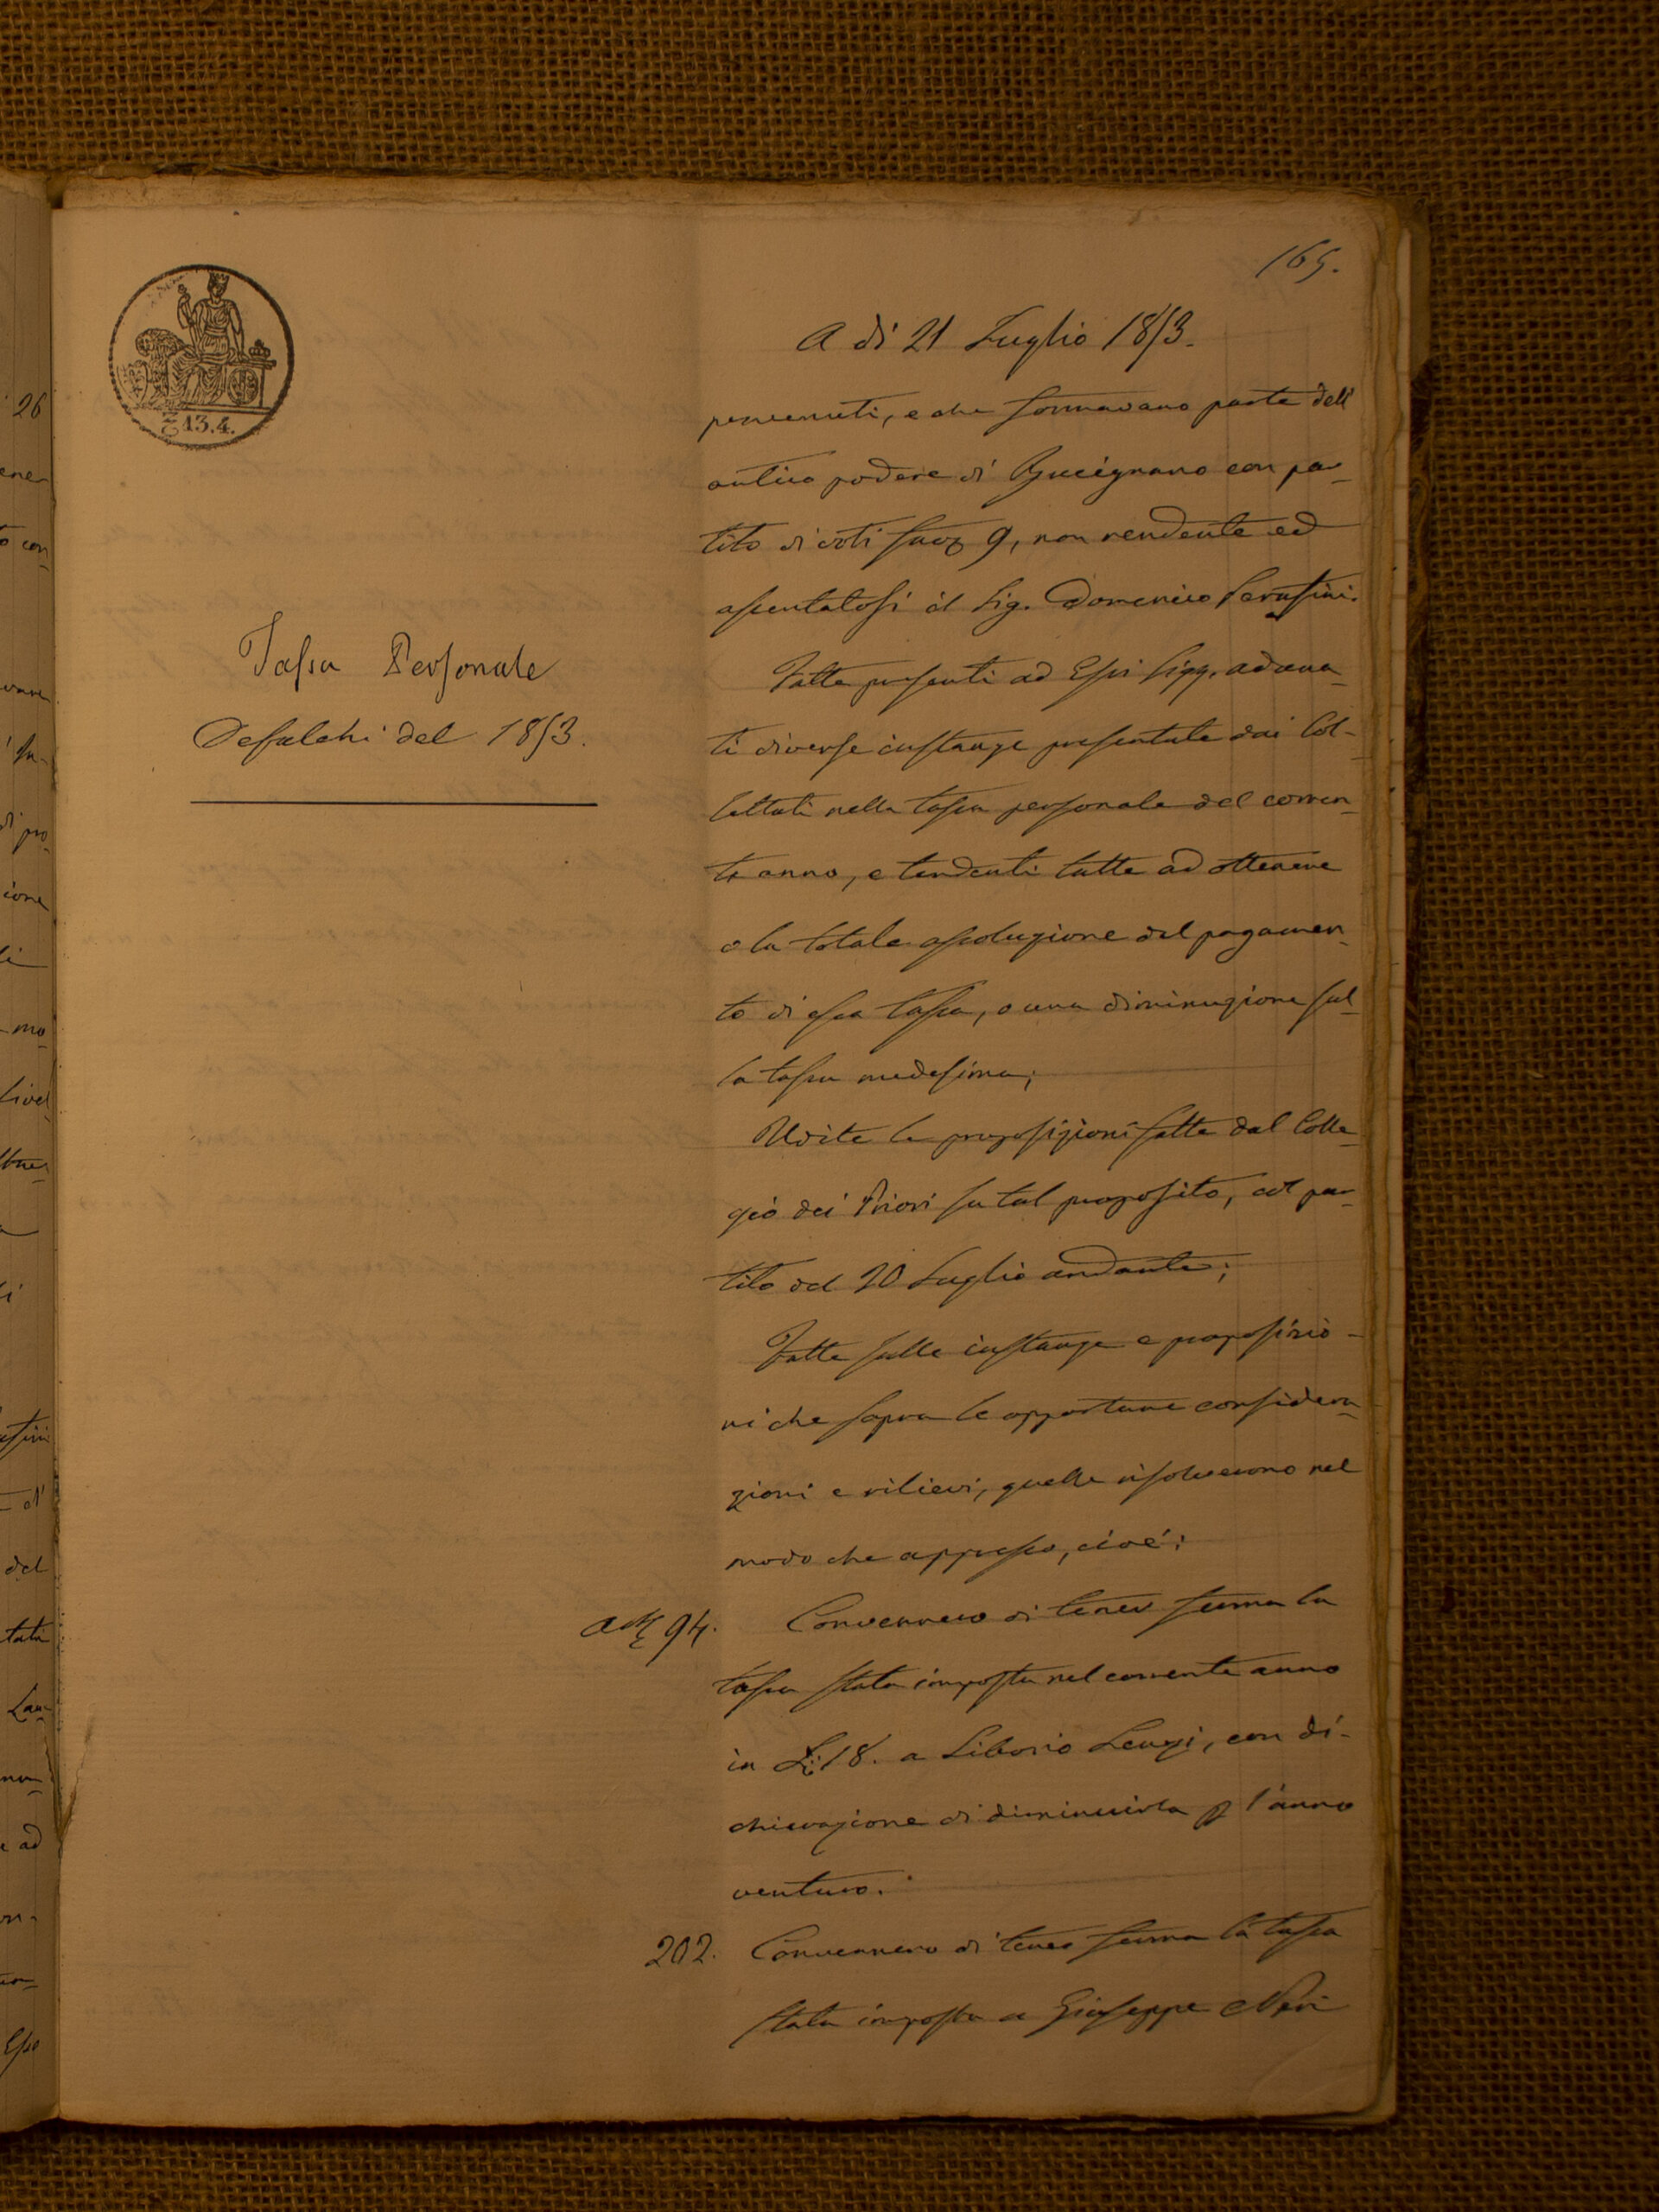 165.
A dì 21 Luglio 1853.
pervenuti, e che formavano parte dell'
antico podere di Gucignano con par-
tito di voti favz 9, non rendente ed
assentatosi il Sig. Domenico Perusini.
Tassa Personale
Defalchi del 1853.
Fatte presenti ad Essi Sigg. aduna-
ti diverse instanze presentate dai Col-
lettati nella tassa personale del corren-
te anno, e tendenti tutte ad ottenere
o la totale assoluzione del pagamen-
to di essa tassa, o una diminuzione sul-
la tassa medesima;
Udite le proposizioni fatte dal Colle-
gio dei Priori su tal proposito, col par-
tito del 20 Luglio andante;
Fatte sulle instanze e proposizio-
ni che sopra le opportune considera-
zioni e rilievi, quelle risolverono nel
modo che appresso, cioè:
Art 94. Convennero di tener ferma la
tassa stata imposta nel corrente anno
in L. 18. a Liborio Lenzi, con di-
chiarazione di diminuirla p l'anno
venturo.
202. Convennero di tener ferma la tassa
stata imposta a Giuseppe Neri
13.4.